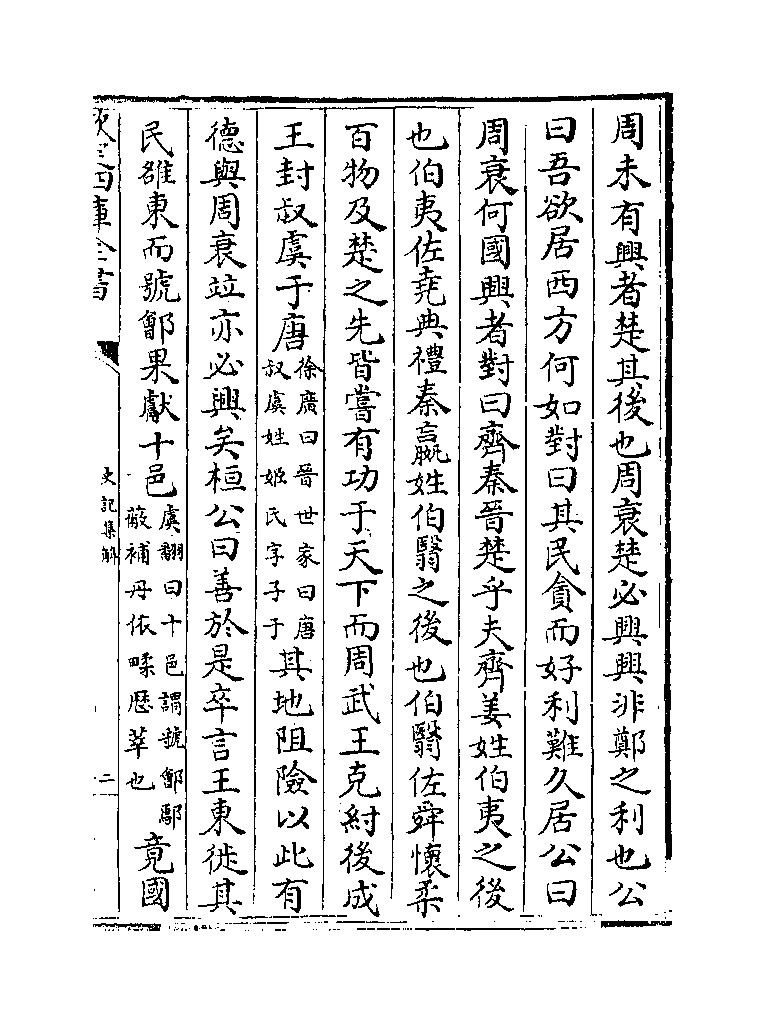 周未有興者楚其後也周衰楚必興興非鄭之利也公
曰吾欲居西方何如對曰其民貪而好利難久居公曰
周衰何國興者對曰齊秦晉楚乎夫齊姜姓伯夷之後
也伯夷佐堯典禮秦嬴姓伯翳之後也伯翳佐舜懷柔
百物及楚之先皆嘗有功于天下而周武王克紂後成
王封叔虞于唐徐廣曰晉世家曰唐叔虞姓姬氏字子于其地阻險以此有
德與周衰竝亦必興矣桓公曰善於是卒言王東徙其
民雒東而虢鄶果獻十邑虞翻曰十邑謂虢鄶鄢蔽補丹依㽥歴莘也竟國
欽定四庫全書
史記集解
二